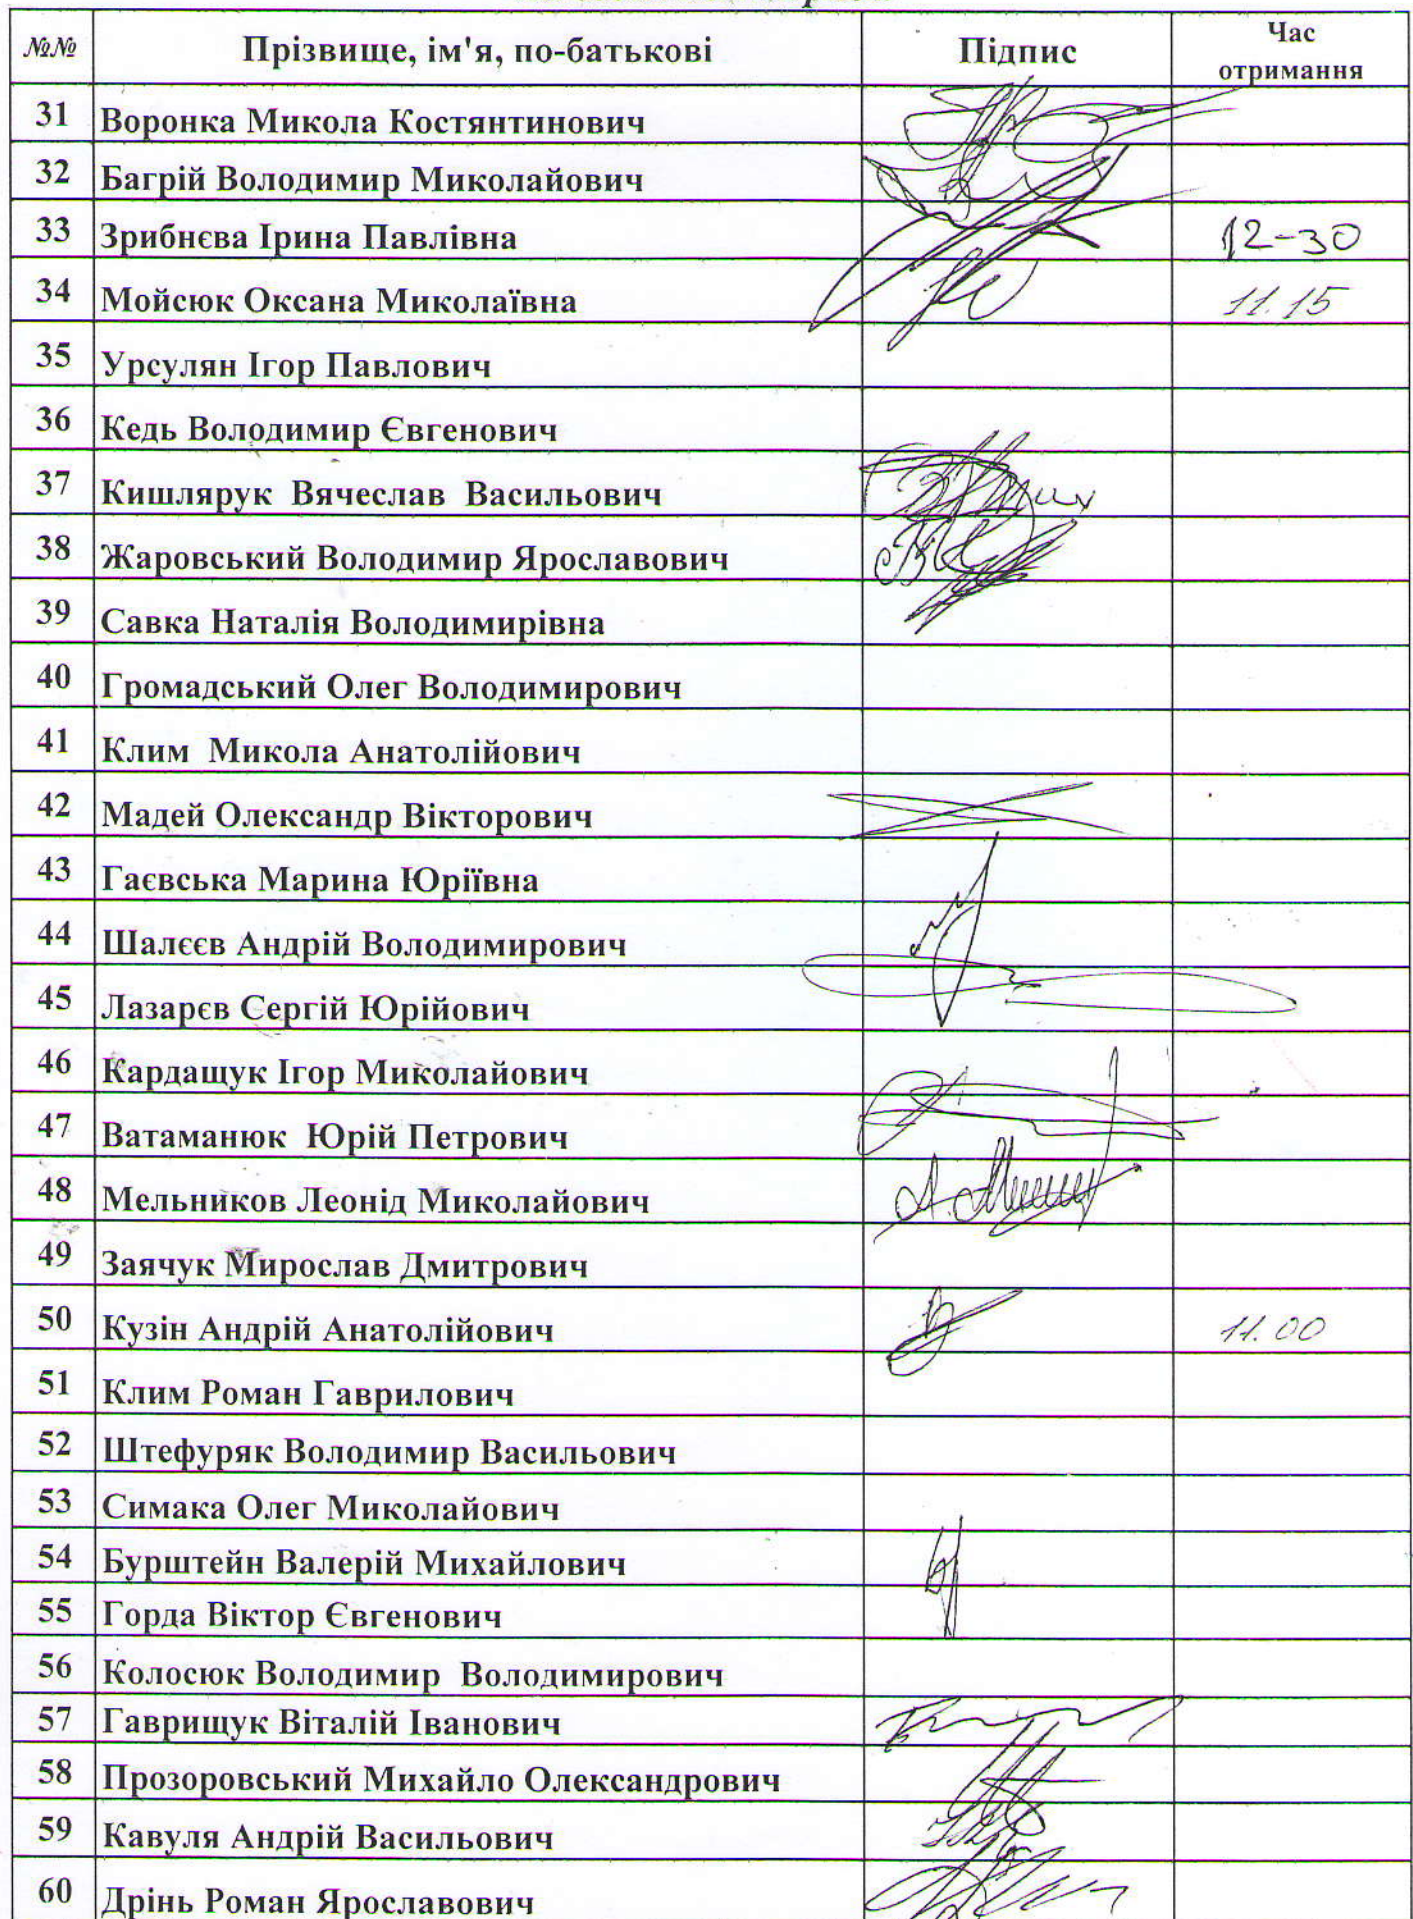 №№ Прізвище, ім'я, по-батькові Підпис Час отримання
31 Воронка Микола Костянтинович
32 Багрій Володимир Миколайович
33 Зрибнєва Ірина Павлівна 12-30
34 Мойсюк Оксана Миколаївна 11.15
35 Урсулян Ігор Павлович
36 Кедь Володимир Євгенович
37 Кишлярук Вячеслав Васильович
38 Жаровський Володимир Ярославович
39 Савка Наталія Володимирівна
40 Громадський Олег Володимирович
41 Клим Микола Анатолійович
42 Мадей Олександр Вікторович
43 Гаєвська Марина Юріївна
44 Шалєєв Андрій Володимирович
45 Лазарєв Сергій Юрійович
46 Кардащук Ігор Миколайович
47 Ватаманюк Юрій Петрович
48 Мельников Леонід Миколайович
49 Заячук Мирослав Дмитрович
50 Кузін Андрій Анатолійович 11.00
51 Клим Роман Гаврилович
52 Штефуряк Володимир Васильович
53 Симака Олег Миколайович
54 Бурштейн Валерій Михайлович
55 Горда Віктор Євгенович
56 Колосюк Володимир Володимирович
57 Гаврищук Віталій Іванович
58 Прозоровський Михайло Олександрович
59 Кавуля Андрій Васильович
60 Дрінь Роман Ярославович